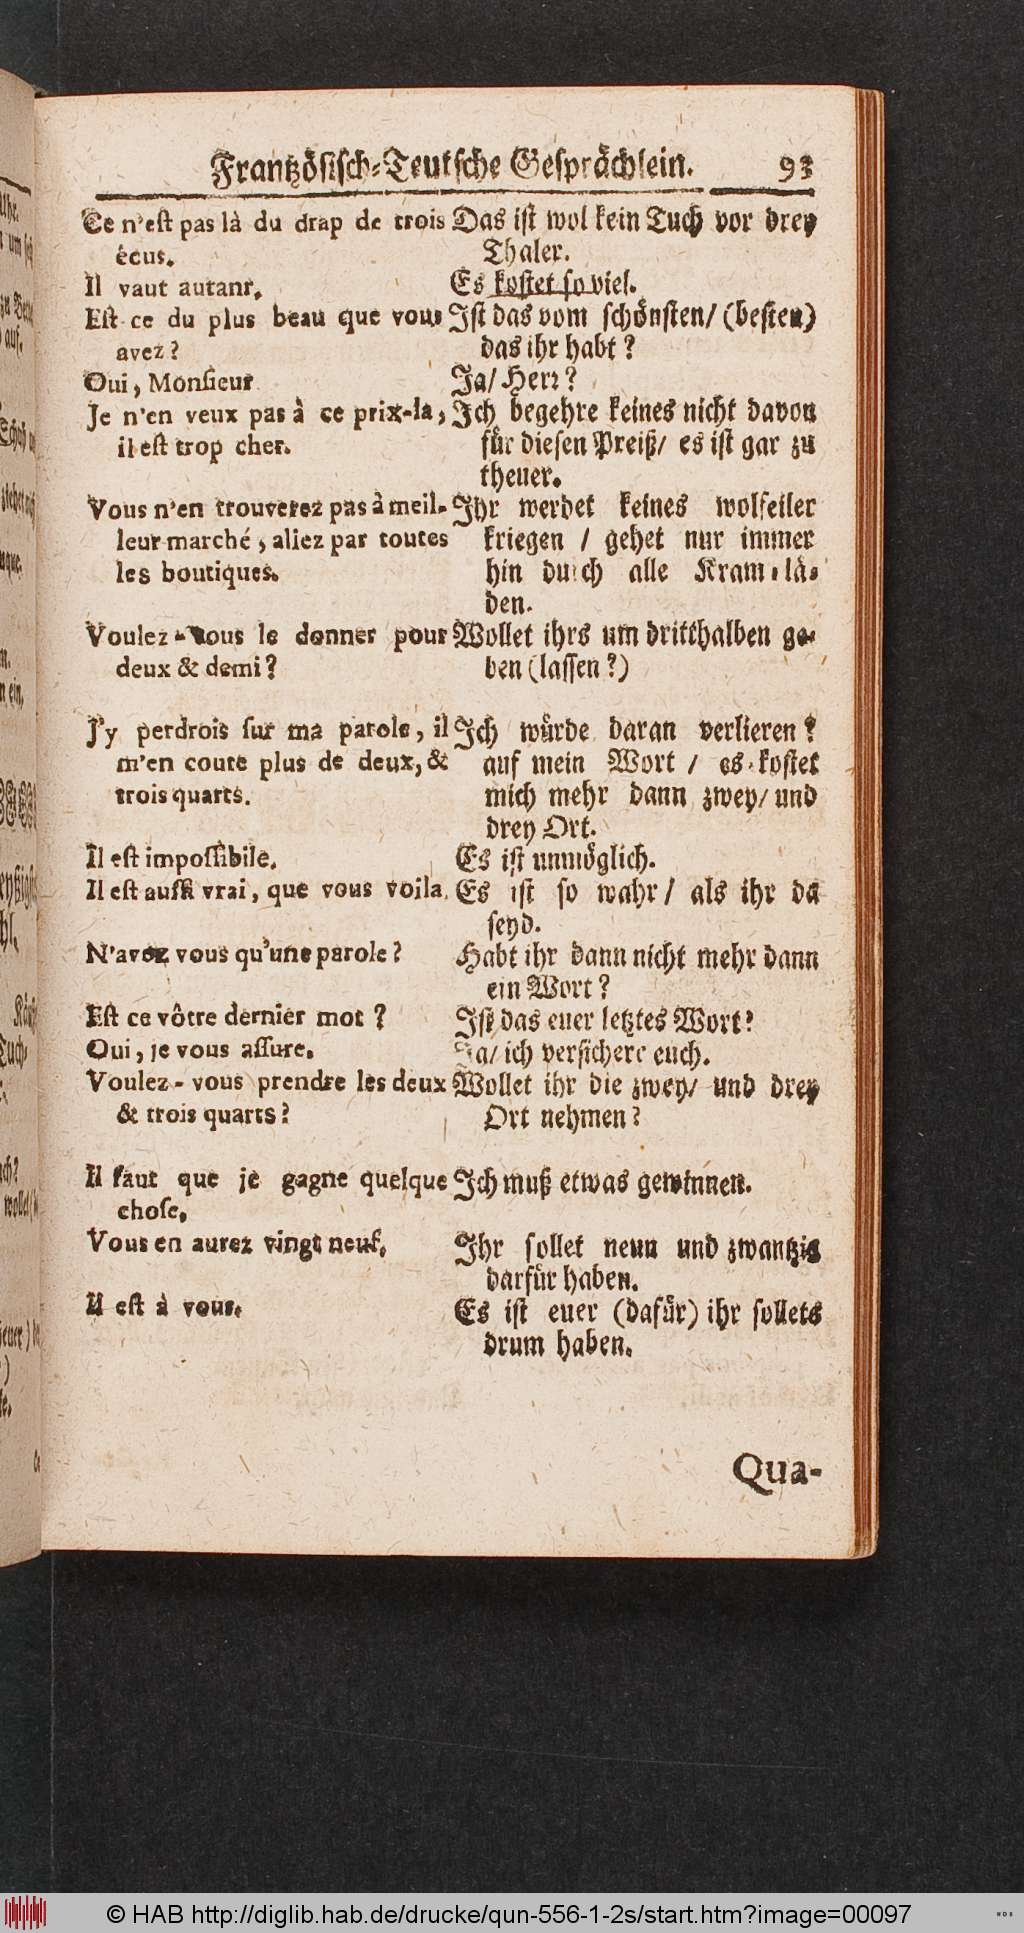 Frantzösisch-Teutsche Gesprächlein. 93
Ce n'est pas là du drap de trois
écus.
Il vaut autant.
Est-ce du plus beau que vous
avez?
Oui, Monsieur
Je n'en veux pas à ce prix-la,
il est trop cher.
Vous n'en trouverez pas à meil-
leur marché, allez par toutes
les boutiques.
Voulez-vous le donner pour
deux & demi?
J'y perdrois sur ma parole, il
m'en coute plus de deux, &
trois quarts.
Il est impossibile.
Il est aussi vrai, que vous voila.
N'avez vous qu'une parole?
Est ce vôtre dernier mot?
Oui, je vous assure.
Voulez-vous prendre les deux
& trois quarts?
Il faut que je gagne quelque
chose.
Vous en aurez vingt neuf.
Il est à vous.
Das ist wol kein Tuch vor drey
Thaler.
Es kostet so viel.
Ist das vom schönsten/ (besten)
das ihr habt?
Ja/ Herr?
Ich begehre keines nicht davon
für diesen Preiß/ es ist gar zu
theuer.
Ihr werdet keines wolfeiler
kriegen / gehet nur immer
hin durch alle Kram-lä-
den.
Wollet ihrs um dritthalben ge-
ben (lassen?)
Ich würde daran verlieren?
auf mein Wort / es kostet
mich mehr dann zwey/ und
drey Ort.
Es ist unmöglich.
Es ist so wahr/ als ihr da
seyd.
Habt ihr dann nicht mehr dann
ein Wort?
Ist das euer letztes Wort?
Ja/ ich versichere euch.
Wollet ihr die zwey/ und drey
Ort nehmen?
Ich muß etwas gewinnen.
Ihr sollet neun und zwantzig
darfür haben.
Es ist euer (dafür) ihr sollets
drum haben.
Qua-
© HAB http://diglib.hab.de/drucke/qun-556-1-2s/start.htm?image=00097